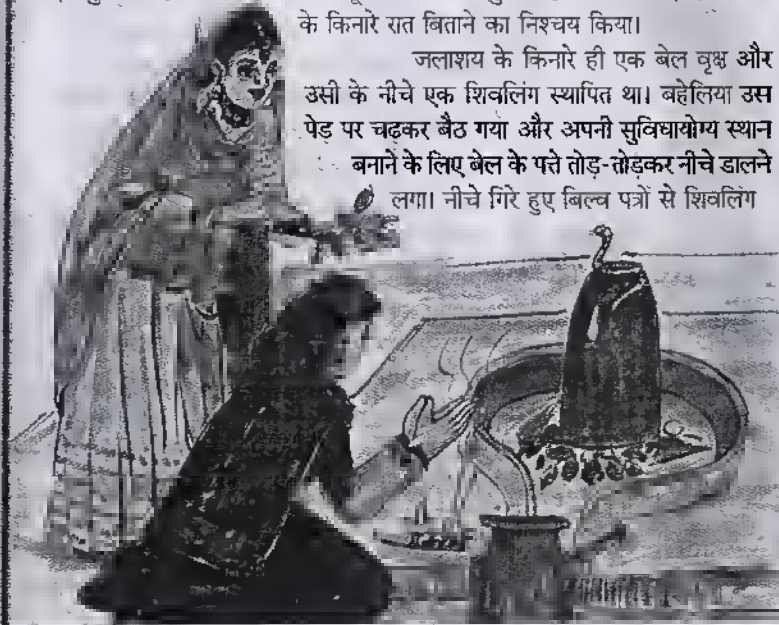 के किनारे रात बिताने का निश्चय किया।
जलाशय के किनारे ही एक बेल वृक्ष और
उसी के नीचे एक शिवलिंग स्थापित था। बहेलिया उस
पेड़ पर चढ़कर बैठ गया और अपनी सुविधायोग्य स्थान
बनाने के लिए बेल के पत्ते तोड़-तोड़कर नीचे डालने
लगा। नीचे गिरे हुए बिल्व पत्रों से शिवलिंग